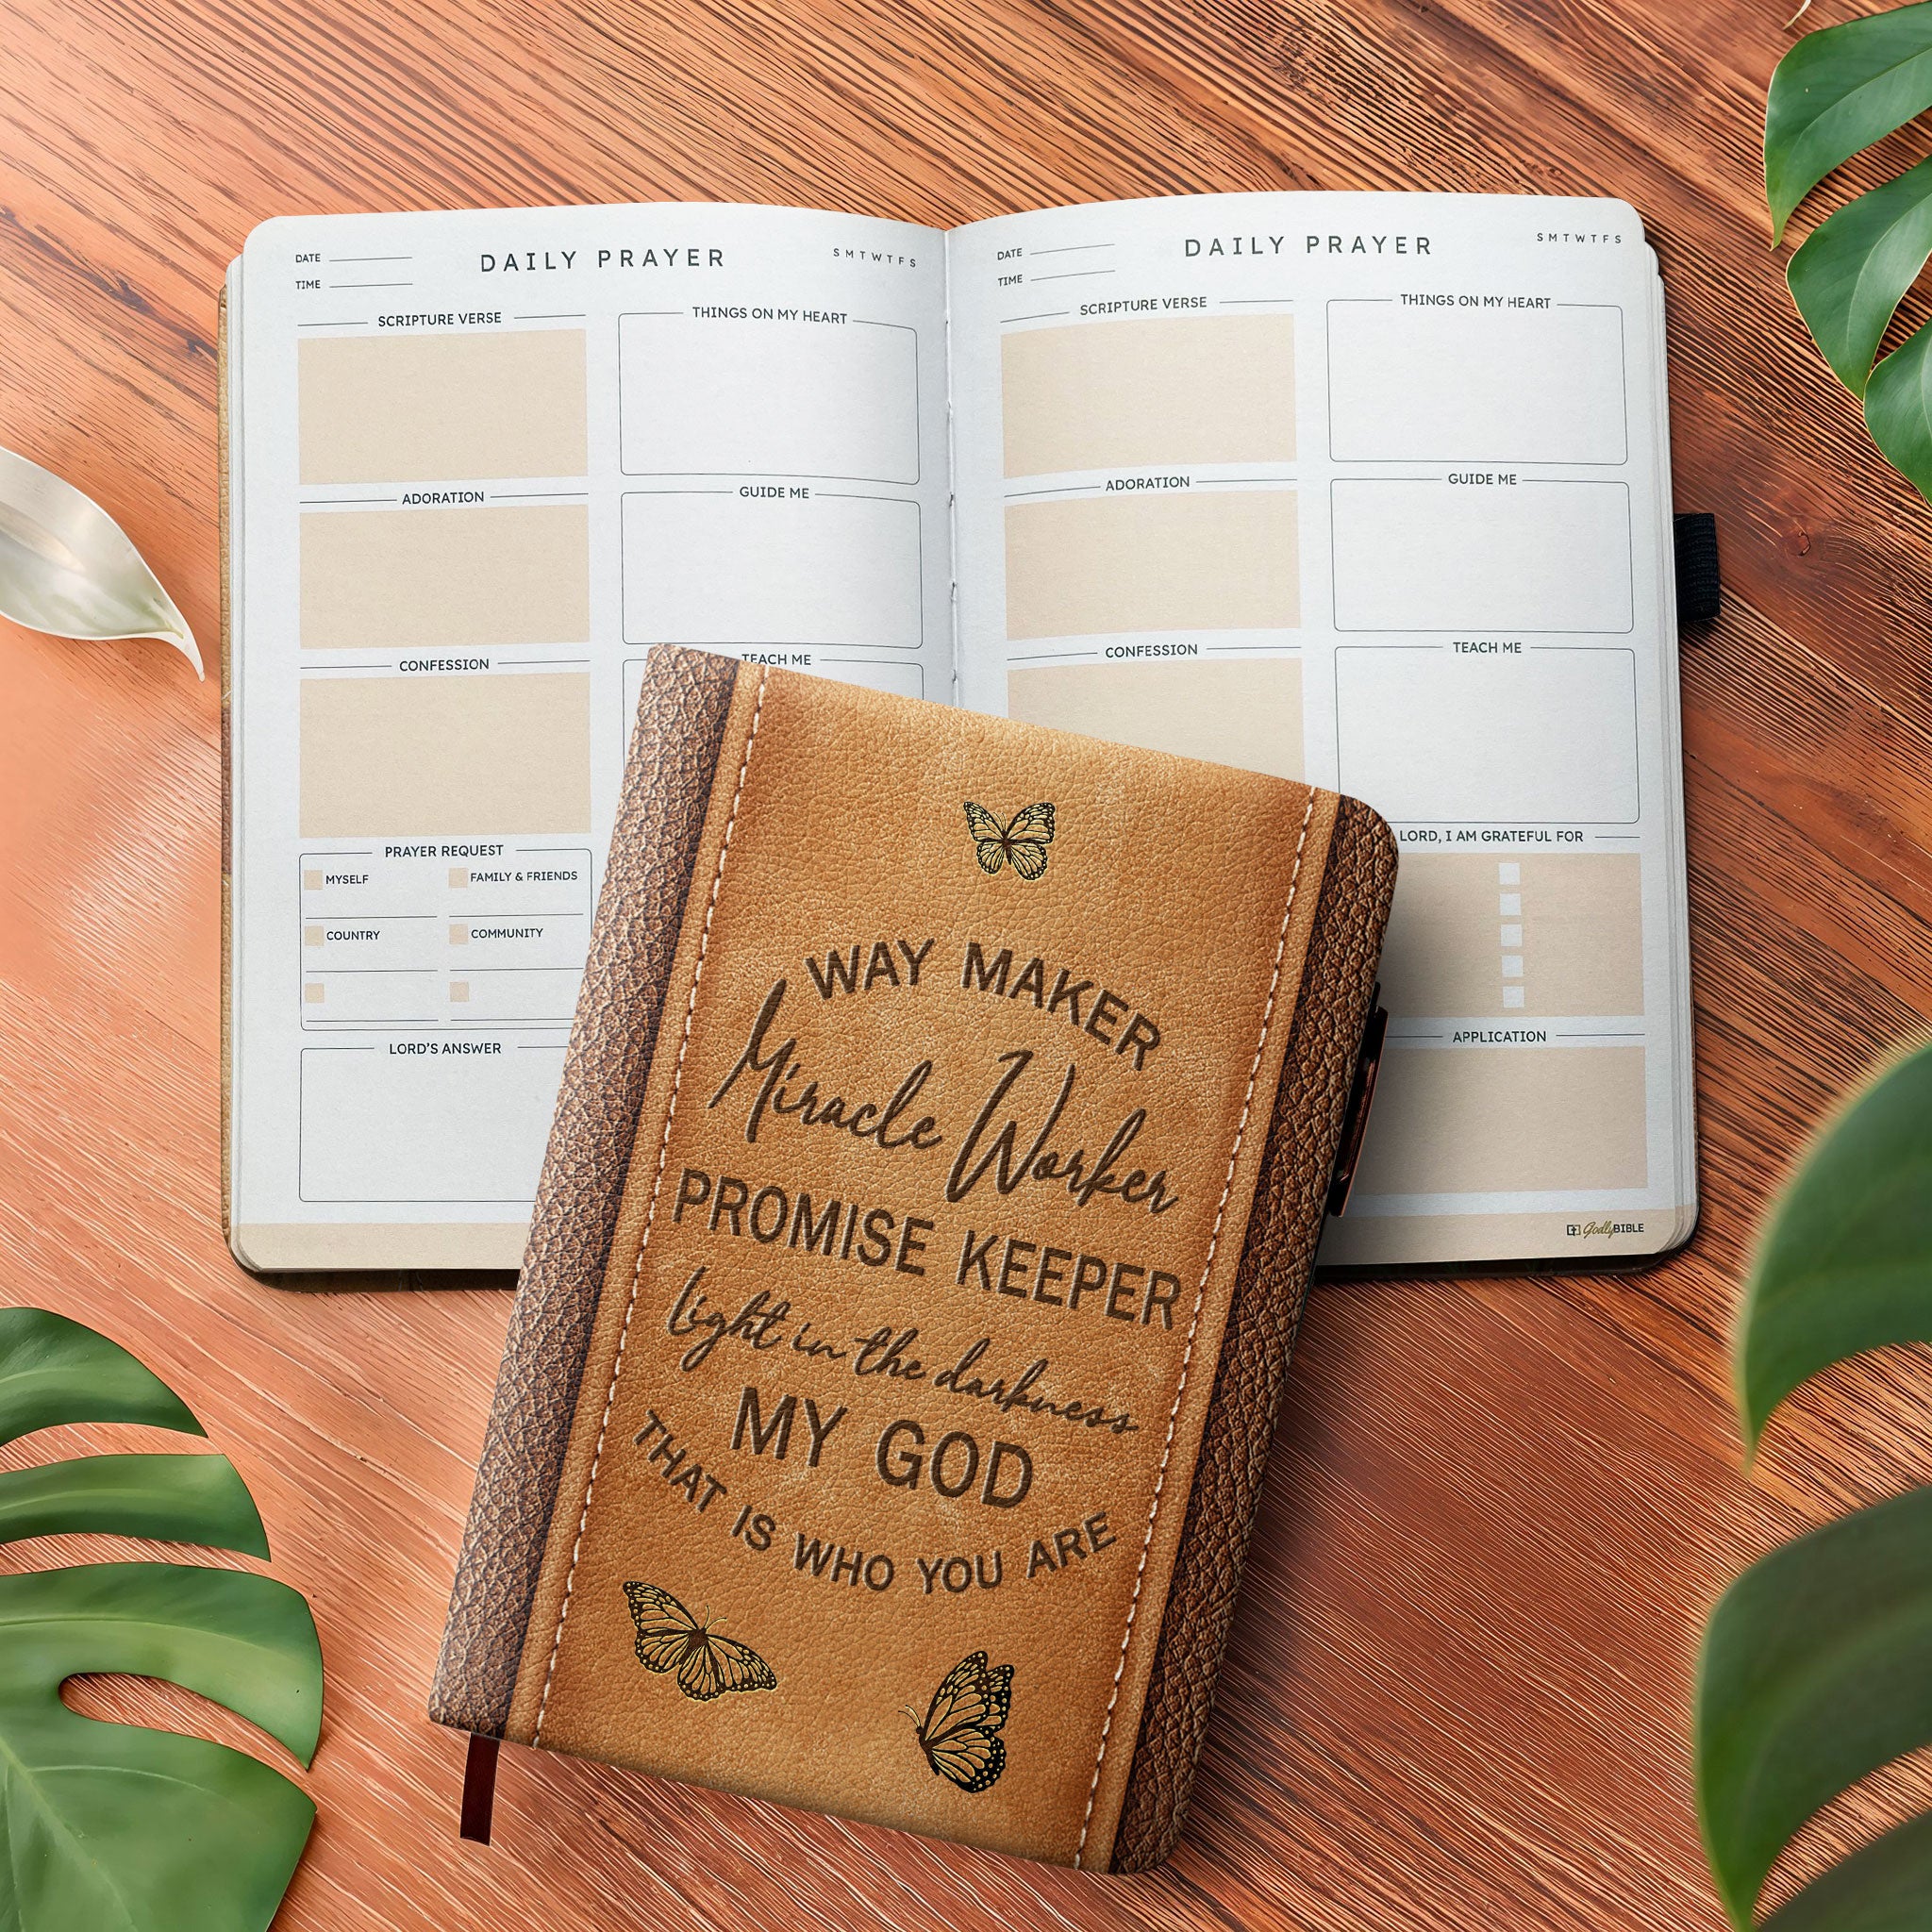 DATE
DAILY PRAYER
S M T W T F S
TIME
SCRIPTURE VERSE
THINGS ON MY HEART
ADORATION
GUIDE ME
CONFESSION
TEACH ME
PRAYER REQUEST
MYSELF
FAMILY & FRIENDS
COUNTRY
COMMUNITY
LORD'S ANSWER
DATE
DAILY PRAYER
S M T W T F S
TIME
SCRIPTURE VERSE
THINGS ON MY HEART
ADORATION
GUIDE ME
CONFESSION
TEACH ME
LORD, I AM GRATEFUL FOR
APPLICATION
GodlyBIBLE
WAY MAKER
Miracle Worker
PROMISE KEEPER
light in the darkness
MY GOD
THAT IS WHO YOU ARE